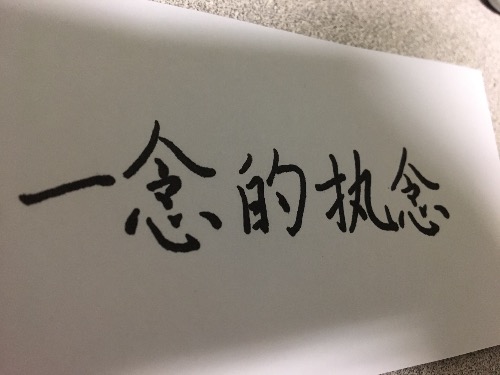 一念的执念